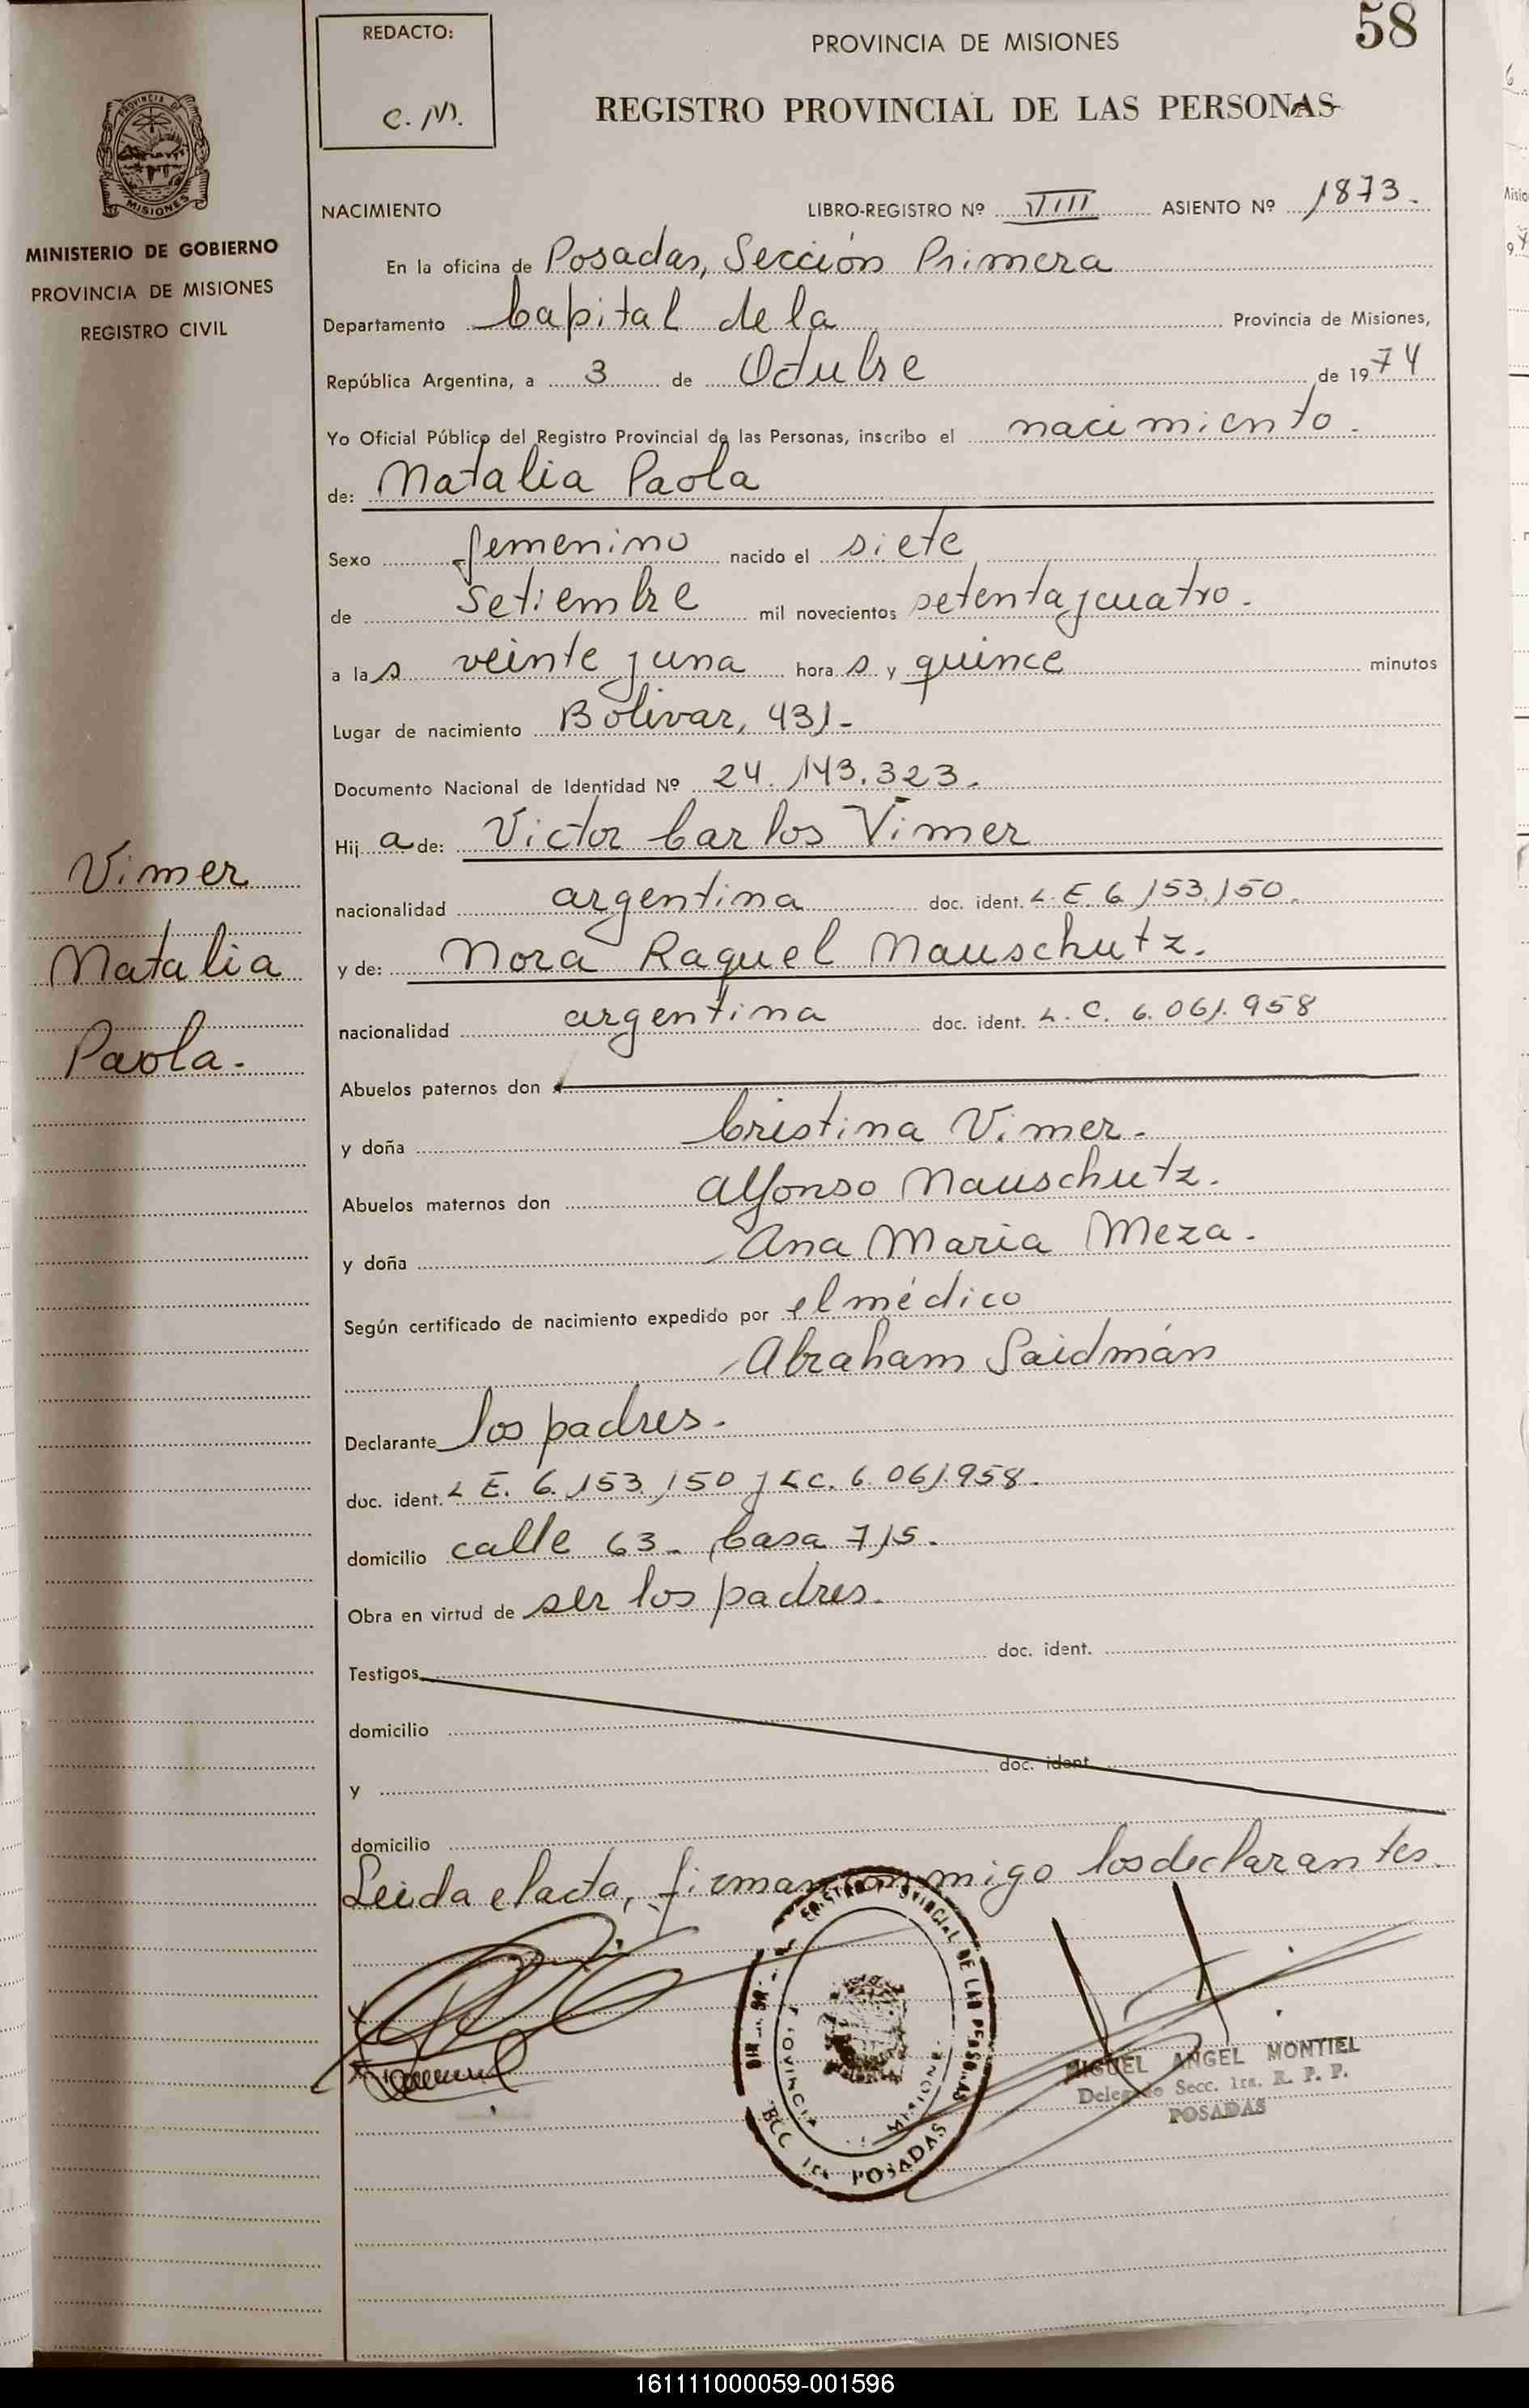 58
REDACTO:
C. M.
PROVINCIA DE MISIONES
REGISTRO PROVINCIAL DE LAS PERSONAS
PROVINCIA DE
MISIONES
MINISTERIO DE GOBIERNO
PROVINCIA DE MISIONES
REGISTRO CIVIL
NACIMIENTO LIBRO-REGISTRO Nº VIII ASIENTO Nº 1873.
En la oficina de Posadas, Sección Primera
Departamento Capital de la Provincia de Misiones,
República Argentina, a 3 de Octubre de 1974
Yo Oficial Público del Registro Provincial de las Personas, inscribo el nacimiento.
de: Natalia Paola
Sexo femenino nacido el siete
de Setiembre mil novecientos setenta y cuatro.
a las veinte y una horas y quince minutos
Lugar de nacimiento Bolivar, 431-
Documento Nacional de Identidad Nº 24.143.323.
Hija de: Victor Carlos Vimer
nacionalidad argentina doc. ident. L.E. 6.153.150.
y de: Nora Raquel Mauschutz.
nacionalidad argentina doc. ident. L.C. 6.061.958
Abuelos paternos don
y doña Cristina Vimer.
Abuelos maternos don Alfonso Mauschutz.
y doña Ana Maria Meza.
Según certificado de nacimiento expedido por el médico
Abraham Saidmán
Declarante los padres.
doc. ident. L.E. 6.153.150 y L.C. 6.061.958.
domicilio calle 63. Casa 715.
Obra en virtud de ser los padres.
Testigos doc. ident.
domicilio
y doc. ident.
domicilio
Leida el acta, firman conmigo los declarantes.
Vimer
Natalia
Paola.
PROVINCIAL DE LAS PERSONAS
PROVINCIA
MISIONES
POSADAS
MIGUEL ANGEL MONTIEL
Delegado Secc. 1ra. R. P. P.
POSADAS
161111000059-001596